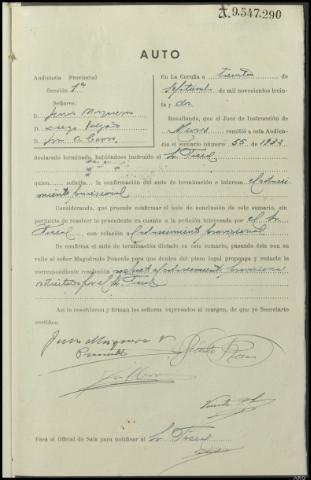 A.9.547.290
AUTO
Audiencia Provincial
Sección 1ª
Señores:
D.
D.
D.
En La Coruña a treinta de
Septiembre de mil novecientos trein-
ta y dos
Resultando, que el Juez de Instrucción de
remitió a esta Audien-
cia el sumario número 55 de 1932
declarado terminado, habiéndose instruido al Sr. Fiscal
quien solicita la confirmación del auto de terminación e interesa el sobresei-
miento provisional
Considerando, que procede confirmar el auto de conclusión de este sumario, sin
perjuicio de resolver lo procedente en cuanto a la petición interesada por el Sr.
Fiscal con relación al sobreseimiento provisional
Se confirma el auto de terminación dictado en este sumario, pasando éste con su
rollo al señor Magistrado Ponente para que dentro del plazo legal proponga y redacte la
correspondiente resolución respecto al sobreseimiento provisional
solicitado por el Sr. Fiscal
Así lo resolvieron y firman los señores expresados al margen, de que yo Secretario
certifico.
Para el Oficial de Sala para notificar al Sr. Fiscal